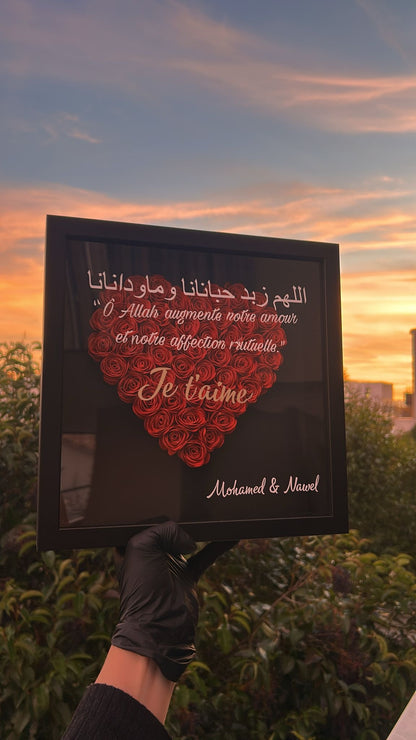 اللهم زيد حبانانا وماودانانا
"Ô Allah augmente notre amour
et notre affection mutuelle."
Je t'aime
Mohamed & Nawel